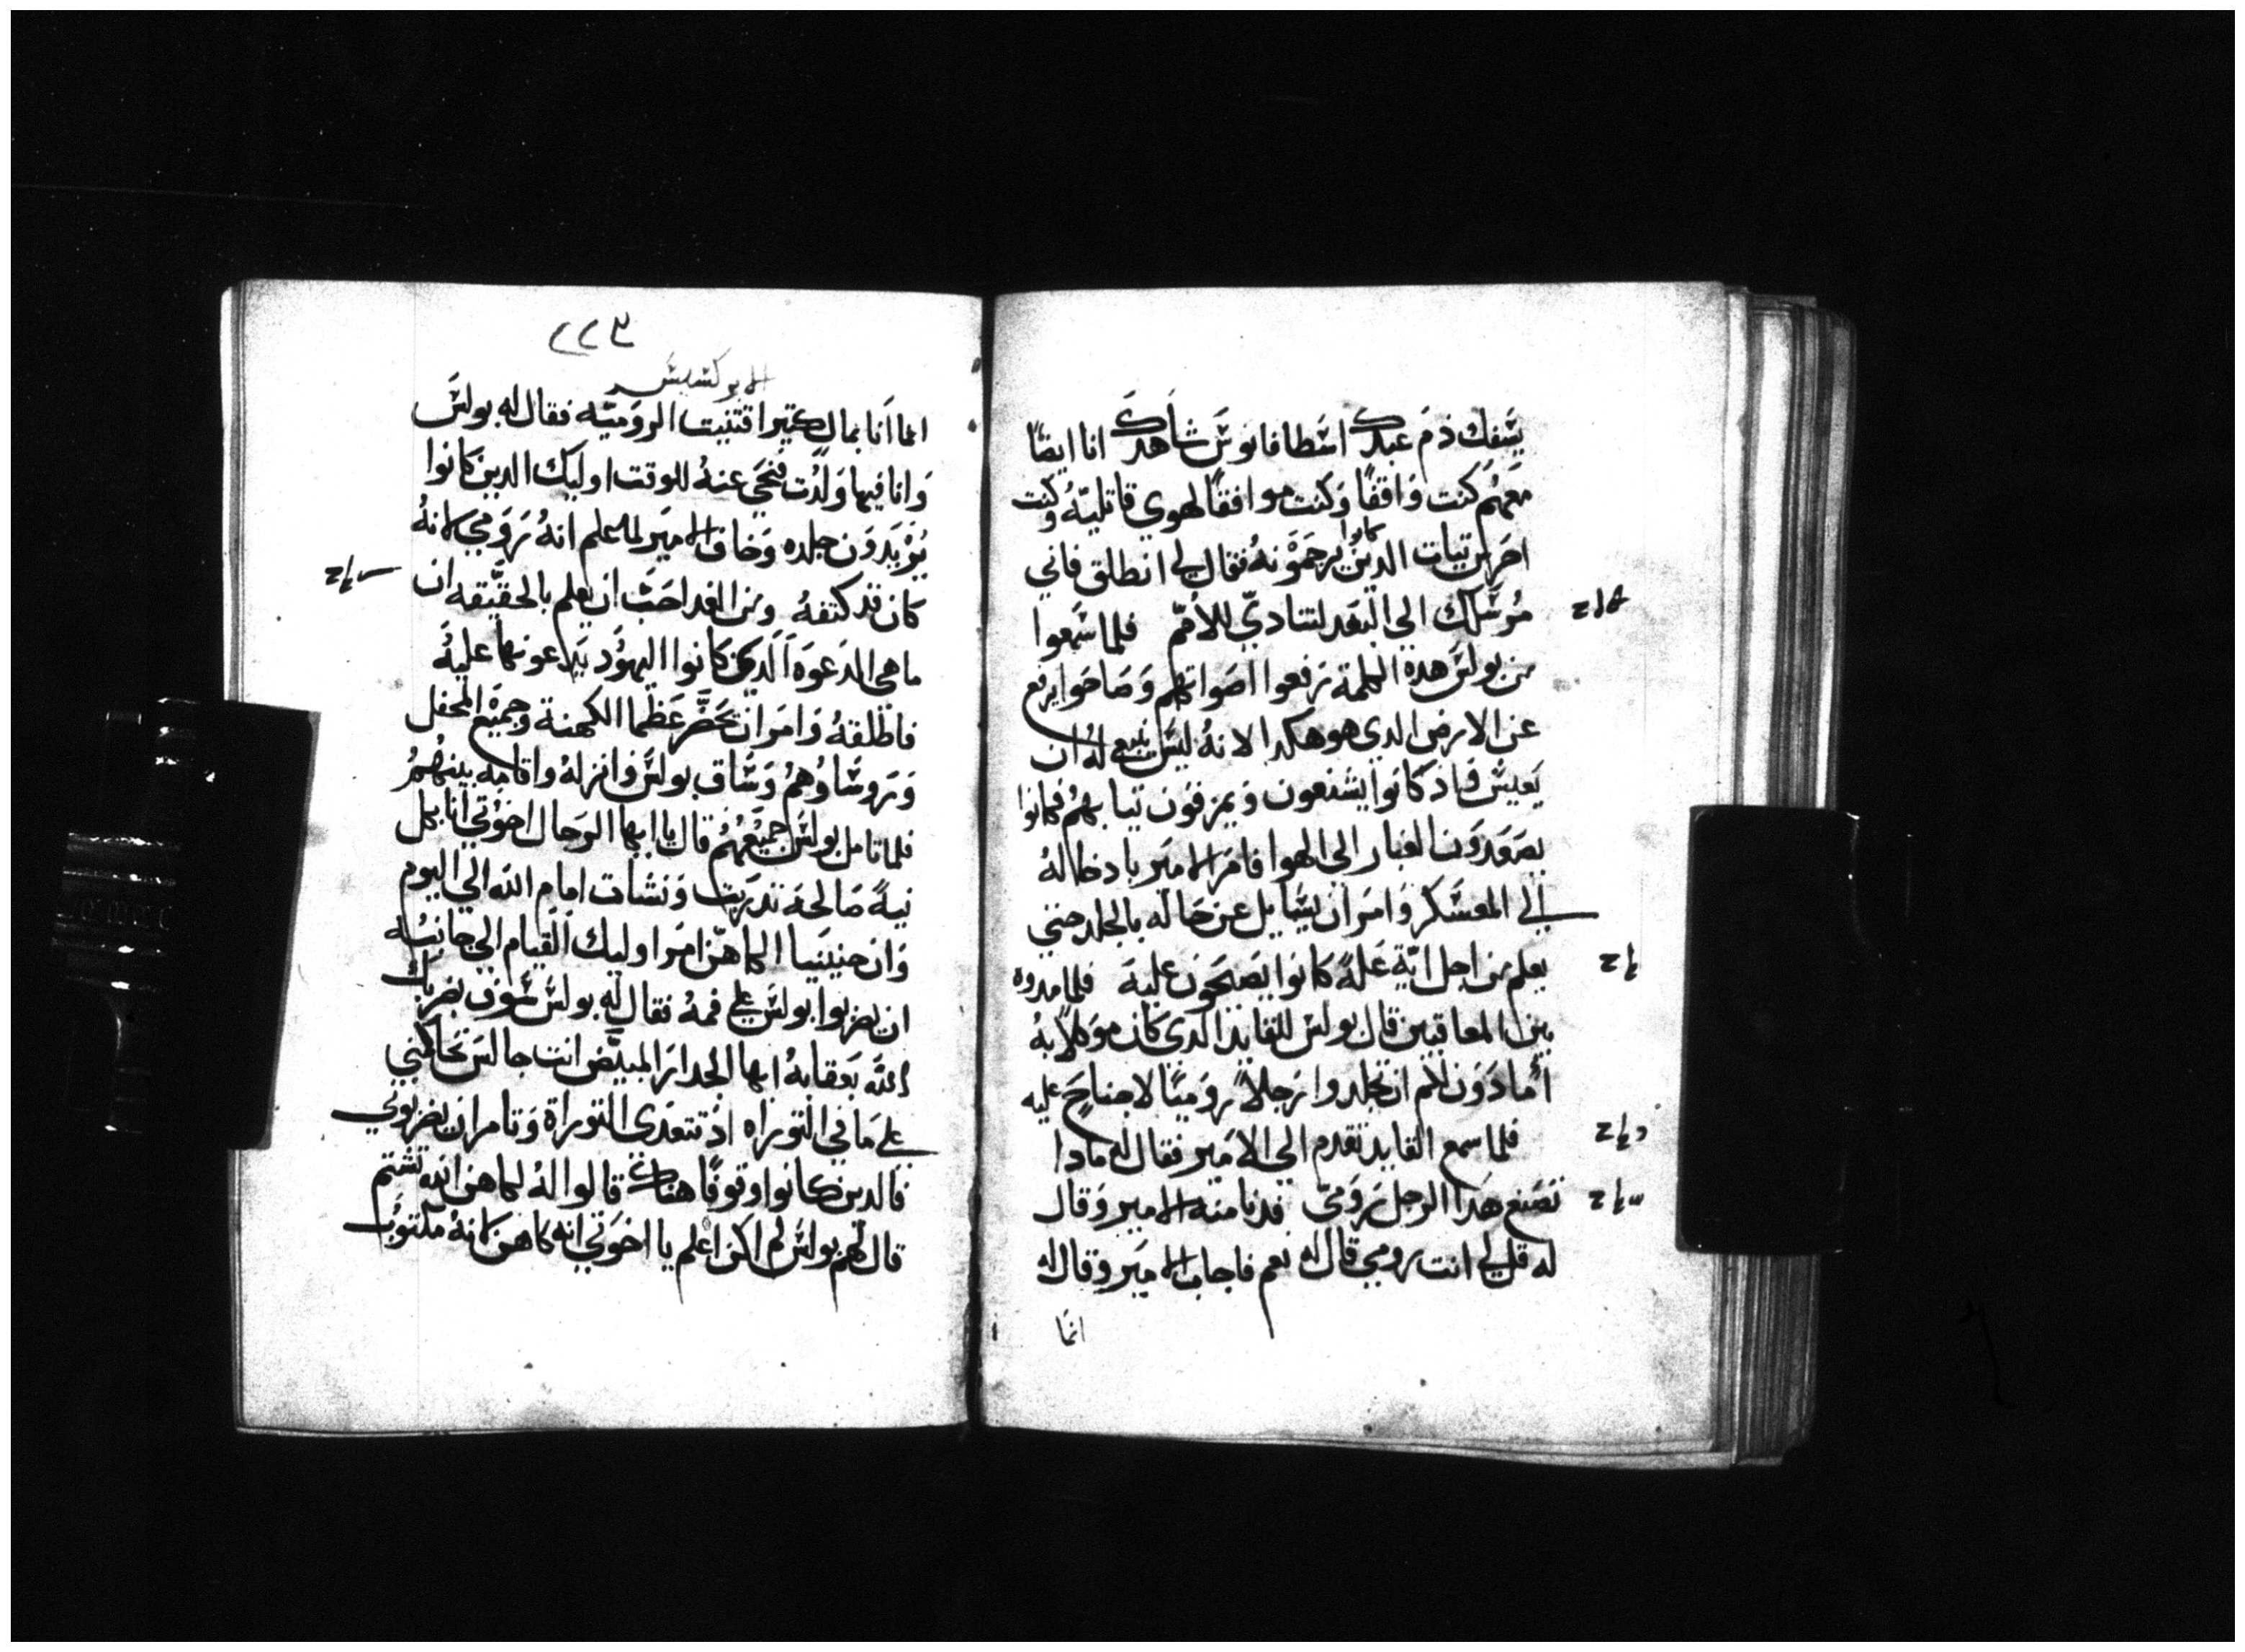 يسفك دم عبدك اسطافانوس شاهدك انا ايضًا
معهم كنت واقفًا وكنت موافقًا لهوي قاتليه وكنت
احرس تيات الدين كانوا يرجمونه فقال لي انطلق فاني
مرسلك الي البعد لتنادي للأمم فلما سمعوا
من بولس هده الكلمة رفعوا اصواتهم وصاحوا يرفع
عن الارض الدي هو هكدا لانه ليس ينبغي له ان
يعيش فاد كانوا يشنعون ويمزقون تيابهم فكانوا
يصعدون الغبار الي الهوا فامر الامير بادخاله
الي المعسكر وامر ان يسايل عن حاله بالجلد حتي
يعلم من اجل اية علة كانوا يصيحون عليه فلما مدوه
بين المعاقبين قال بولس للقايد الدي كان موكلًا به
أمادون لكم ان تجلدوا رجلاً روميًا لا جناح عليه
فلما سمع القايد تقدم الي الامير فقال له مادا
تصنع هدا الرجل رومي فدنا منه الامير وقال
له قل لي انت رومي قال له نعم فاجاب الامير وقال له
انما
٢٢٣
الابركسيس
انما انا بمال كتير اقتنيت الروميه فقال له بولس
وانا فيها ولدت فنحي عنه للوقت اوليك الدين كانوا
يريدون جلده وخاف الامير لما علم انه رومي لانه
كان قد كتفه ومن الغد احب ان يعلم بالحقيقه ان
ما هي الدعوه الدي كانوا اليهود يدعونها عليه
فاطلقه وامر ان تحضر عظما الكهنة وجميع المحفل
وروساوهم وساق بولس وانزله واقامه بينهم
فلما تامل بولس جميعهم قال يا ايها الرجال اخوتي انا بكل
نية صالحة تدربت ونشات امام الله الي اليوم
وان حنينيا الكاهن امر اوليك القيام الي جانبه
ان يضربوا بولس علي فمه فقال له بولس سوف يضربك
الله بعقابه ايها الجدار المبيض انت جالس تحاكمني
علي ما في التوراه اد تتعدي التوراة وتامر ان يضربوني
فالدين كانوا وقوفًا هناك قالوا له لكاهن الله تشتم
قال لهم بولس لم اكن اعلم يا اخوتي انه كاهن لانه مكتوب